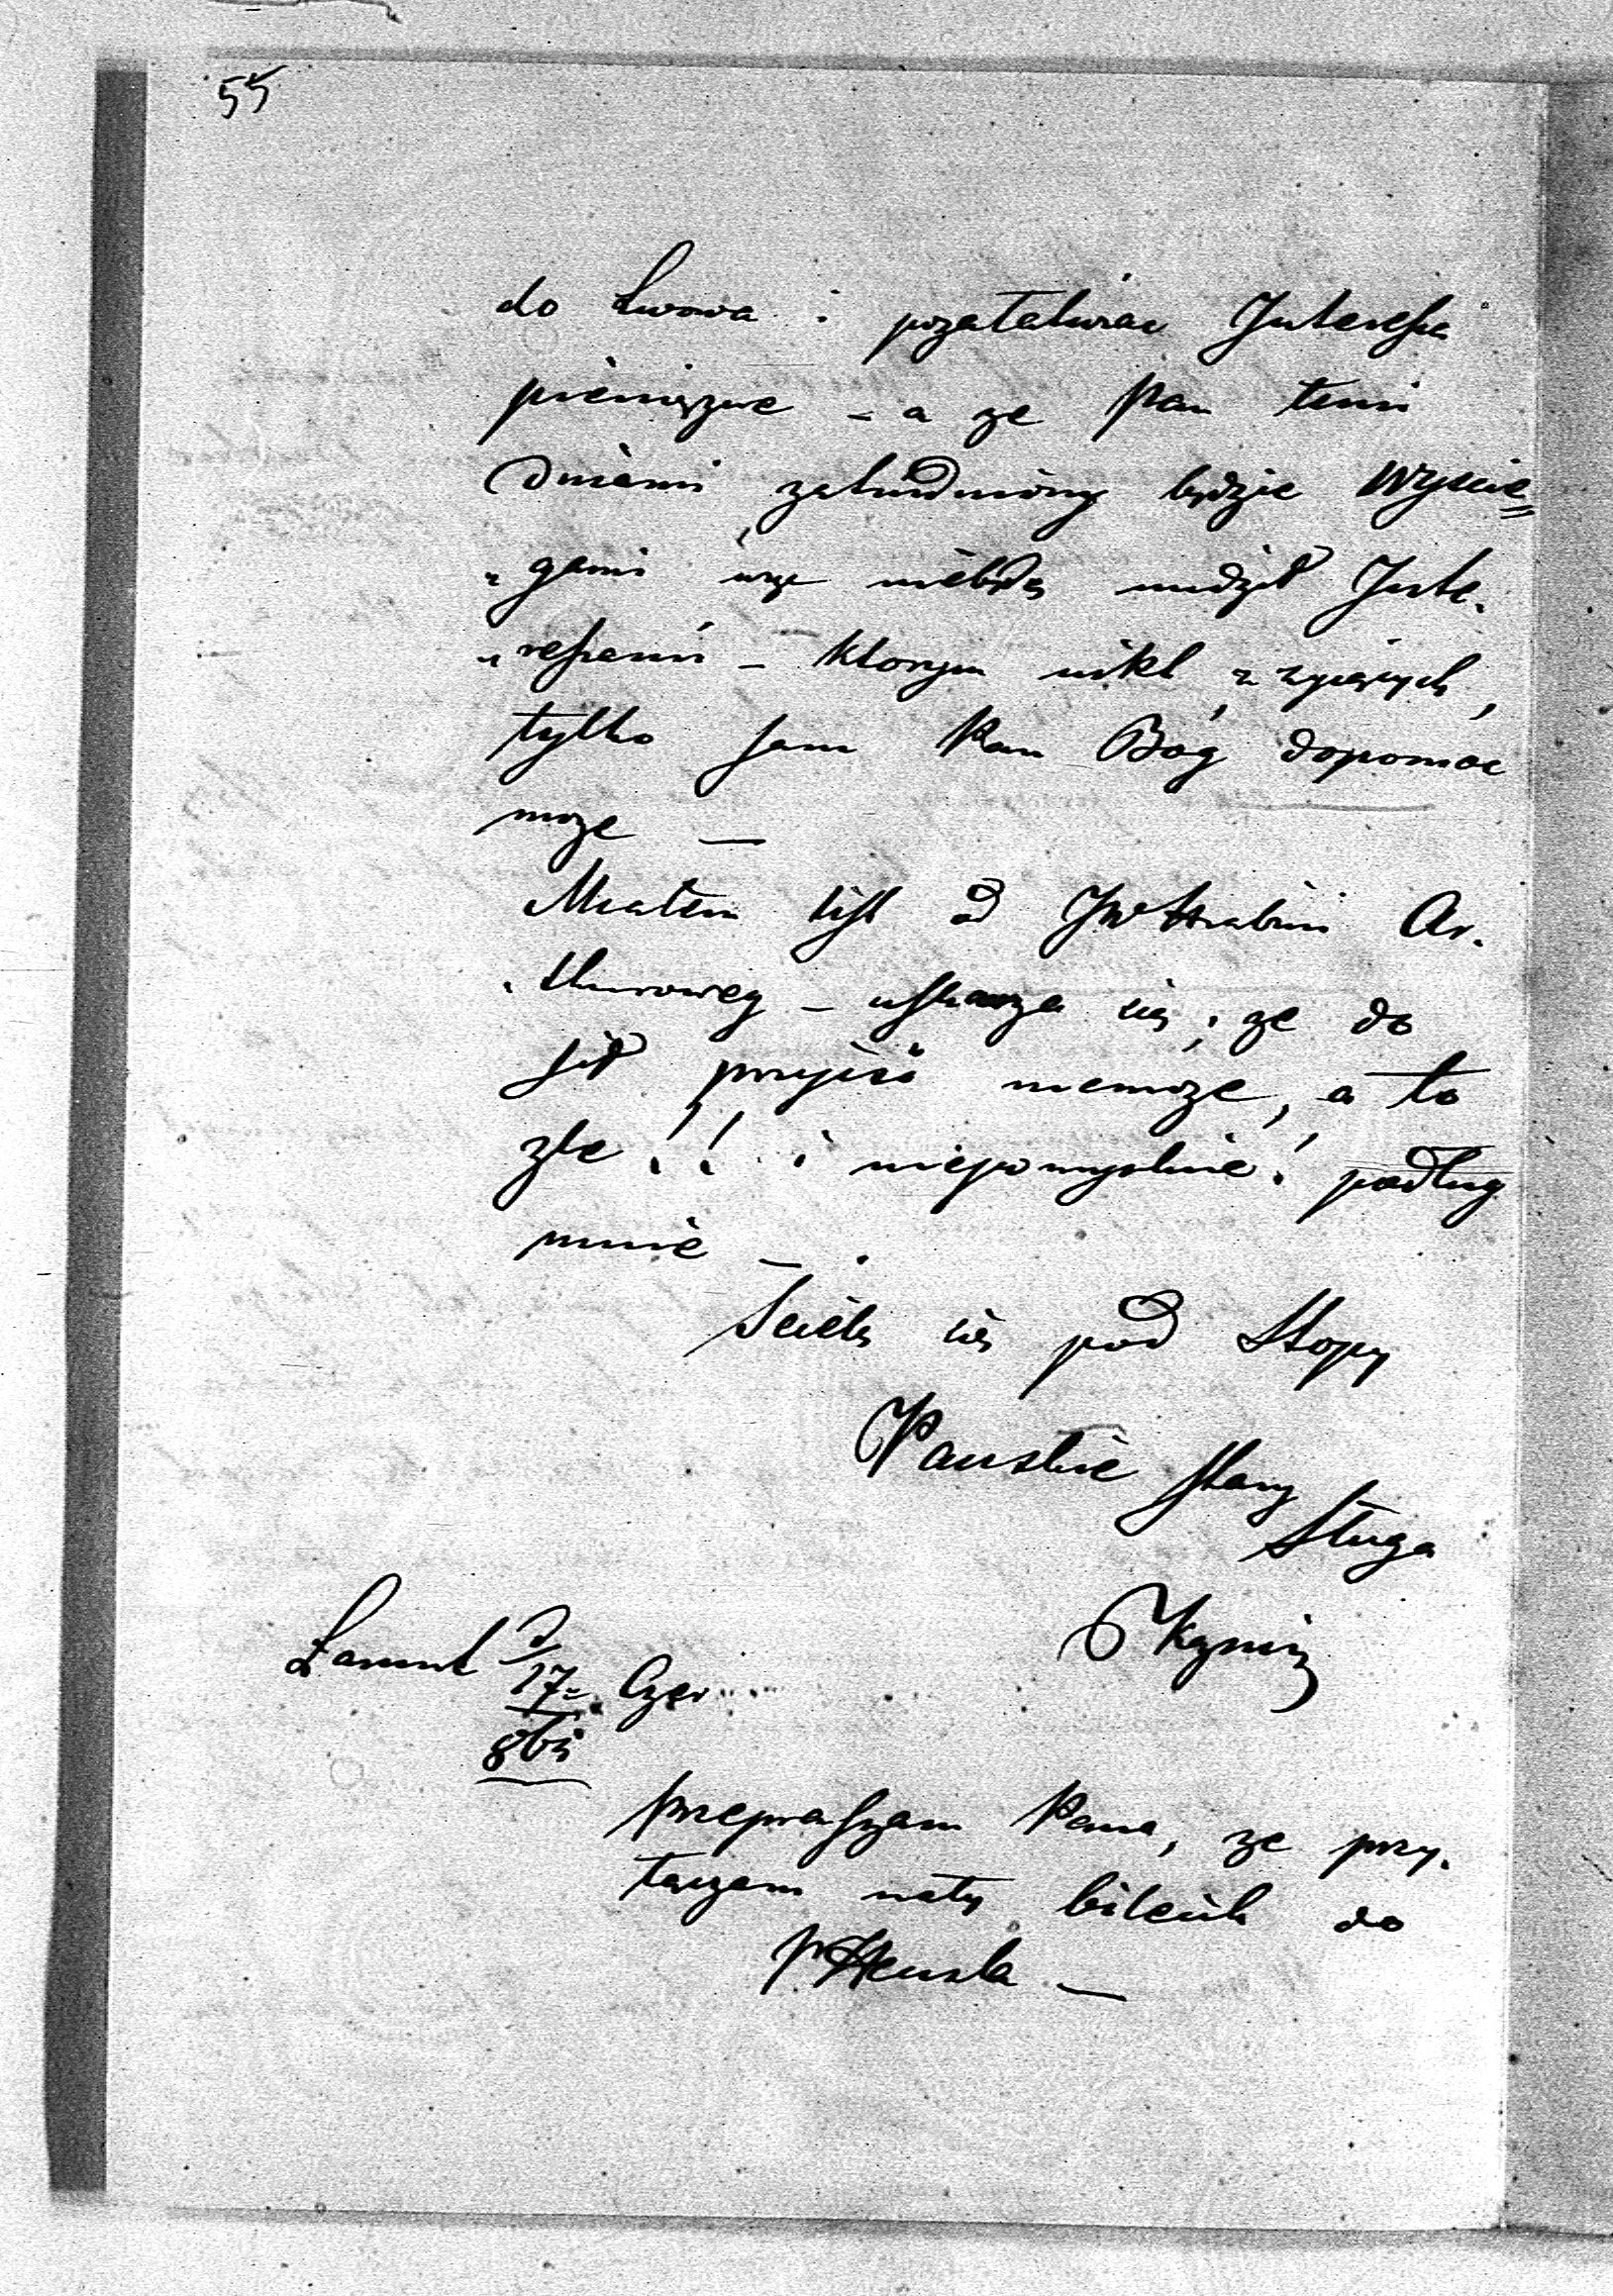 55
do Lwowa i pozalatwiac Interessa
pieniężne - a ze Pan temi
Dniami zatrudniony będzie Wyscie=
"gami więc niebędę nudził Inte-
"ressami - ktorym nikt z zyjących,
tylko sam Pan Bóg dopomoc
moze —
Miałem list od JW Hrabini Ar-
"thurowey - uskarza się, ze do
sił przyiść niemoze, a to
złe!! i niepomyslnie! podług
mnie —.
Scielę się pod Stopy
Panskie stary
Sługa
Łancut d 17= Czer
Przepraszam Pana, ze przy-
łączam mały bilecik do
P Hensla —